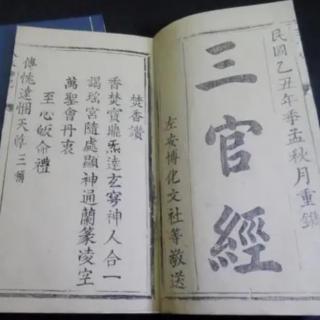 民國乙丑年季孟秋月重鐫
三官經
左安博化文社等敬送
焚香讚
香焚寶鼎炁達玄穹神人合一
謁瑤宮隨處顯神通蘭篆凌空
萬聖會丹衷
至心皈命禮
傳恍達悃天尊三稱